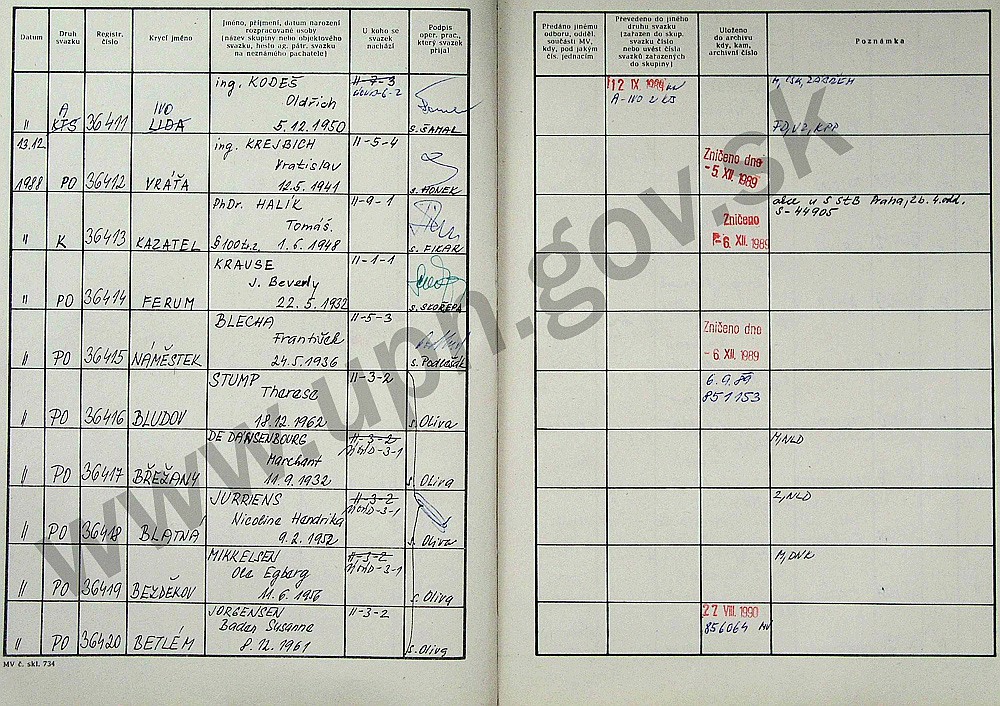 Datum
Druh svazku
Registr. číslo
Krycí jméno
Jméno, příjmení, datum narození
rozpracované osoby
(název skupiny nebo objektového
svazku, heslo ag. pátr. svazku
na neznámého pachatele)
U koho se
svazek
nachází
Podpis
oper. prac.,
který svazek
přijal
Předáno jinému
odboru, odděl.
součásti MV,
kdy, pod jakým
čís. jednacím
Převedeno do jiného
druhu svazku
(zařazen do skup.
svazku číslo
nebo uvést čísla
svazků zařazených
do skupiny)
Uloženo
do archivu
kdy, kam,
archivní číslo
Poznámka
ing. KODEŠ II-7-3
A IVO Oldřich
" KTS 36411 LIDA 5.12.1950 s. ŠAMAL
12 IX. 1989
M, ČSK, ZÁŘÍEM
FO, VZ, KPP
13.12. ing. KREJBICH II-5-4
Vratislav
1988 PO 36412 VRÁŤA 12.5.1941 s. HONEK
Zničeno dne
-5. XII. 1989
PhDr. HALÍK II-9-1
Tomáš
" K 36413 KAZATEL §100tr.z. 1.6.1948 s. FIKAR
Zničeno
-6. XII. 1989
akce u S StB Praha, 2b. 4.odd.
S-44905
KRAUSE II-1-1
J. Beverly
" PO 36414 FERUM 22.5.1932 s. SKOŘEPA
BLECHA II-5-3
František
" PO 36415 NÁMĚSTEK 24.5.1936 s. Podlešák
Zničeno dne
-6. XII. 1989
STUMP II-3-2
Therese
" PO 36416 BLUDOV 18.12.1962 s. Oliva
6.9.89
851153
DE DANSENBOURG II-3-2
Marchant
" PO 36417 BŘEŽANY 11.9.1932 s. Oliva
M, NLD
JURRIENS II-3-2
Nicoline Hendrika
" PO 36418 BLATNÁ 9.2.1952 s. Oliva
Z, NLD
MIKKELSEN II-3-2
Ole Egberg
" PO 36419 BEZDĚKOV 11.6.1956 s. Oliva
M, DNK
JORGENSEN II-3-2
Baden Susanne
" PO 36420 BETLÉM 8.12.1961 s. Oliva
22 VIII. 1990
856064
MV č. skl. 734
www.upn.gov.sk